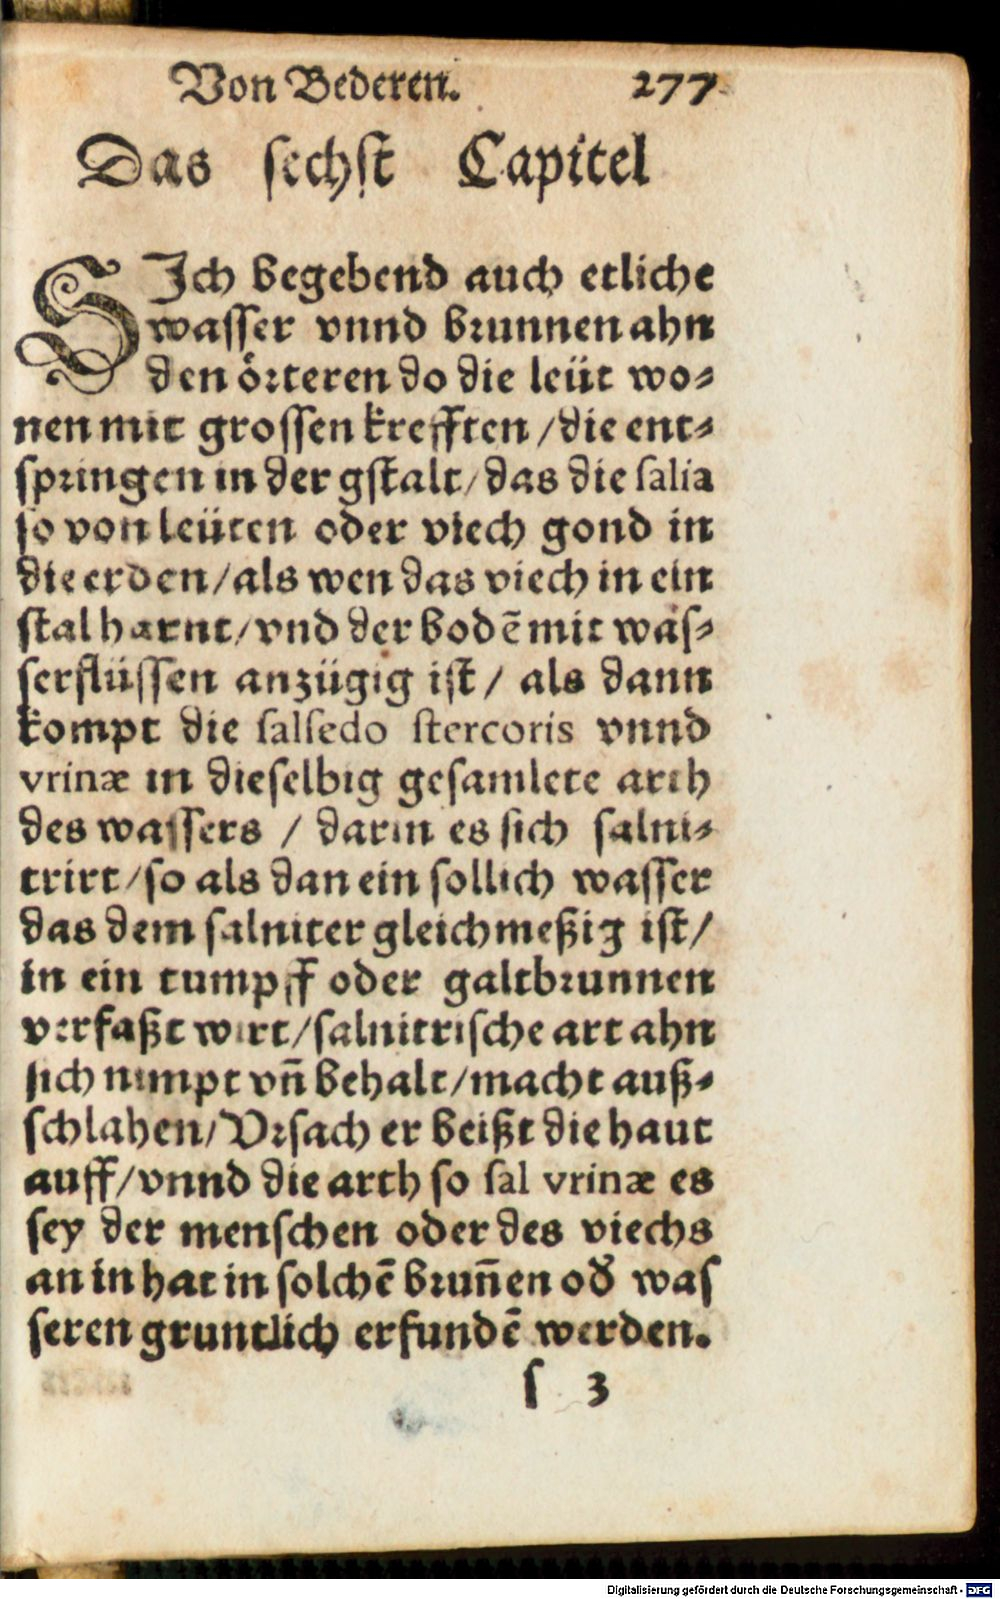 Von Bederen. 277
Das sechst Capitel
SIch begebend auch etliche
wasser vnnd brunnen ahn
den örteren do die leüt wo-
nen mit grossen krefften / die ent-
springen in der gstalt / das die salia
so von leüten oder viech gond in
die erden / als wen das viech in ein
stal harnt / vnd der bodē mit was-
serflüssen anzügig ist / als dann
kompt die salsedo stercoris vnnd
vrinæ in dieselbig gesamlete arth
des wassers / darin es sich salni-
trirt / so als dan ein sollich wasser
das dem salniter gleichmeßig ist /
in ein tumpff oder galtbrunnen
verfaßt wirt / salnitrische art ahn
sich nimpt vñ behalt / macht auß-
schlahen / Vrsach er beißt die haut
auff / vnnd die arth so sal vrinæ es
sey der menschen oder des viechs
an in hat in solchē bruñen od was
seren gruntlich erfundē werden.
s 3
Digitalisierung gefördert durch die Deutsche Forschungsgemeinschaft - DFG